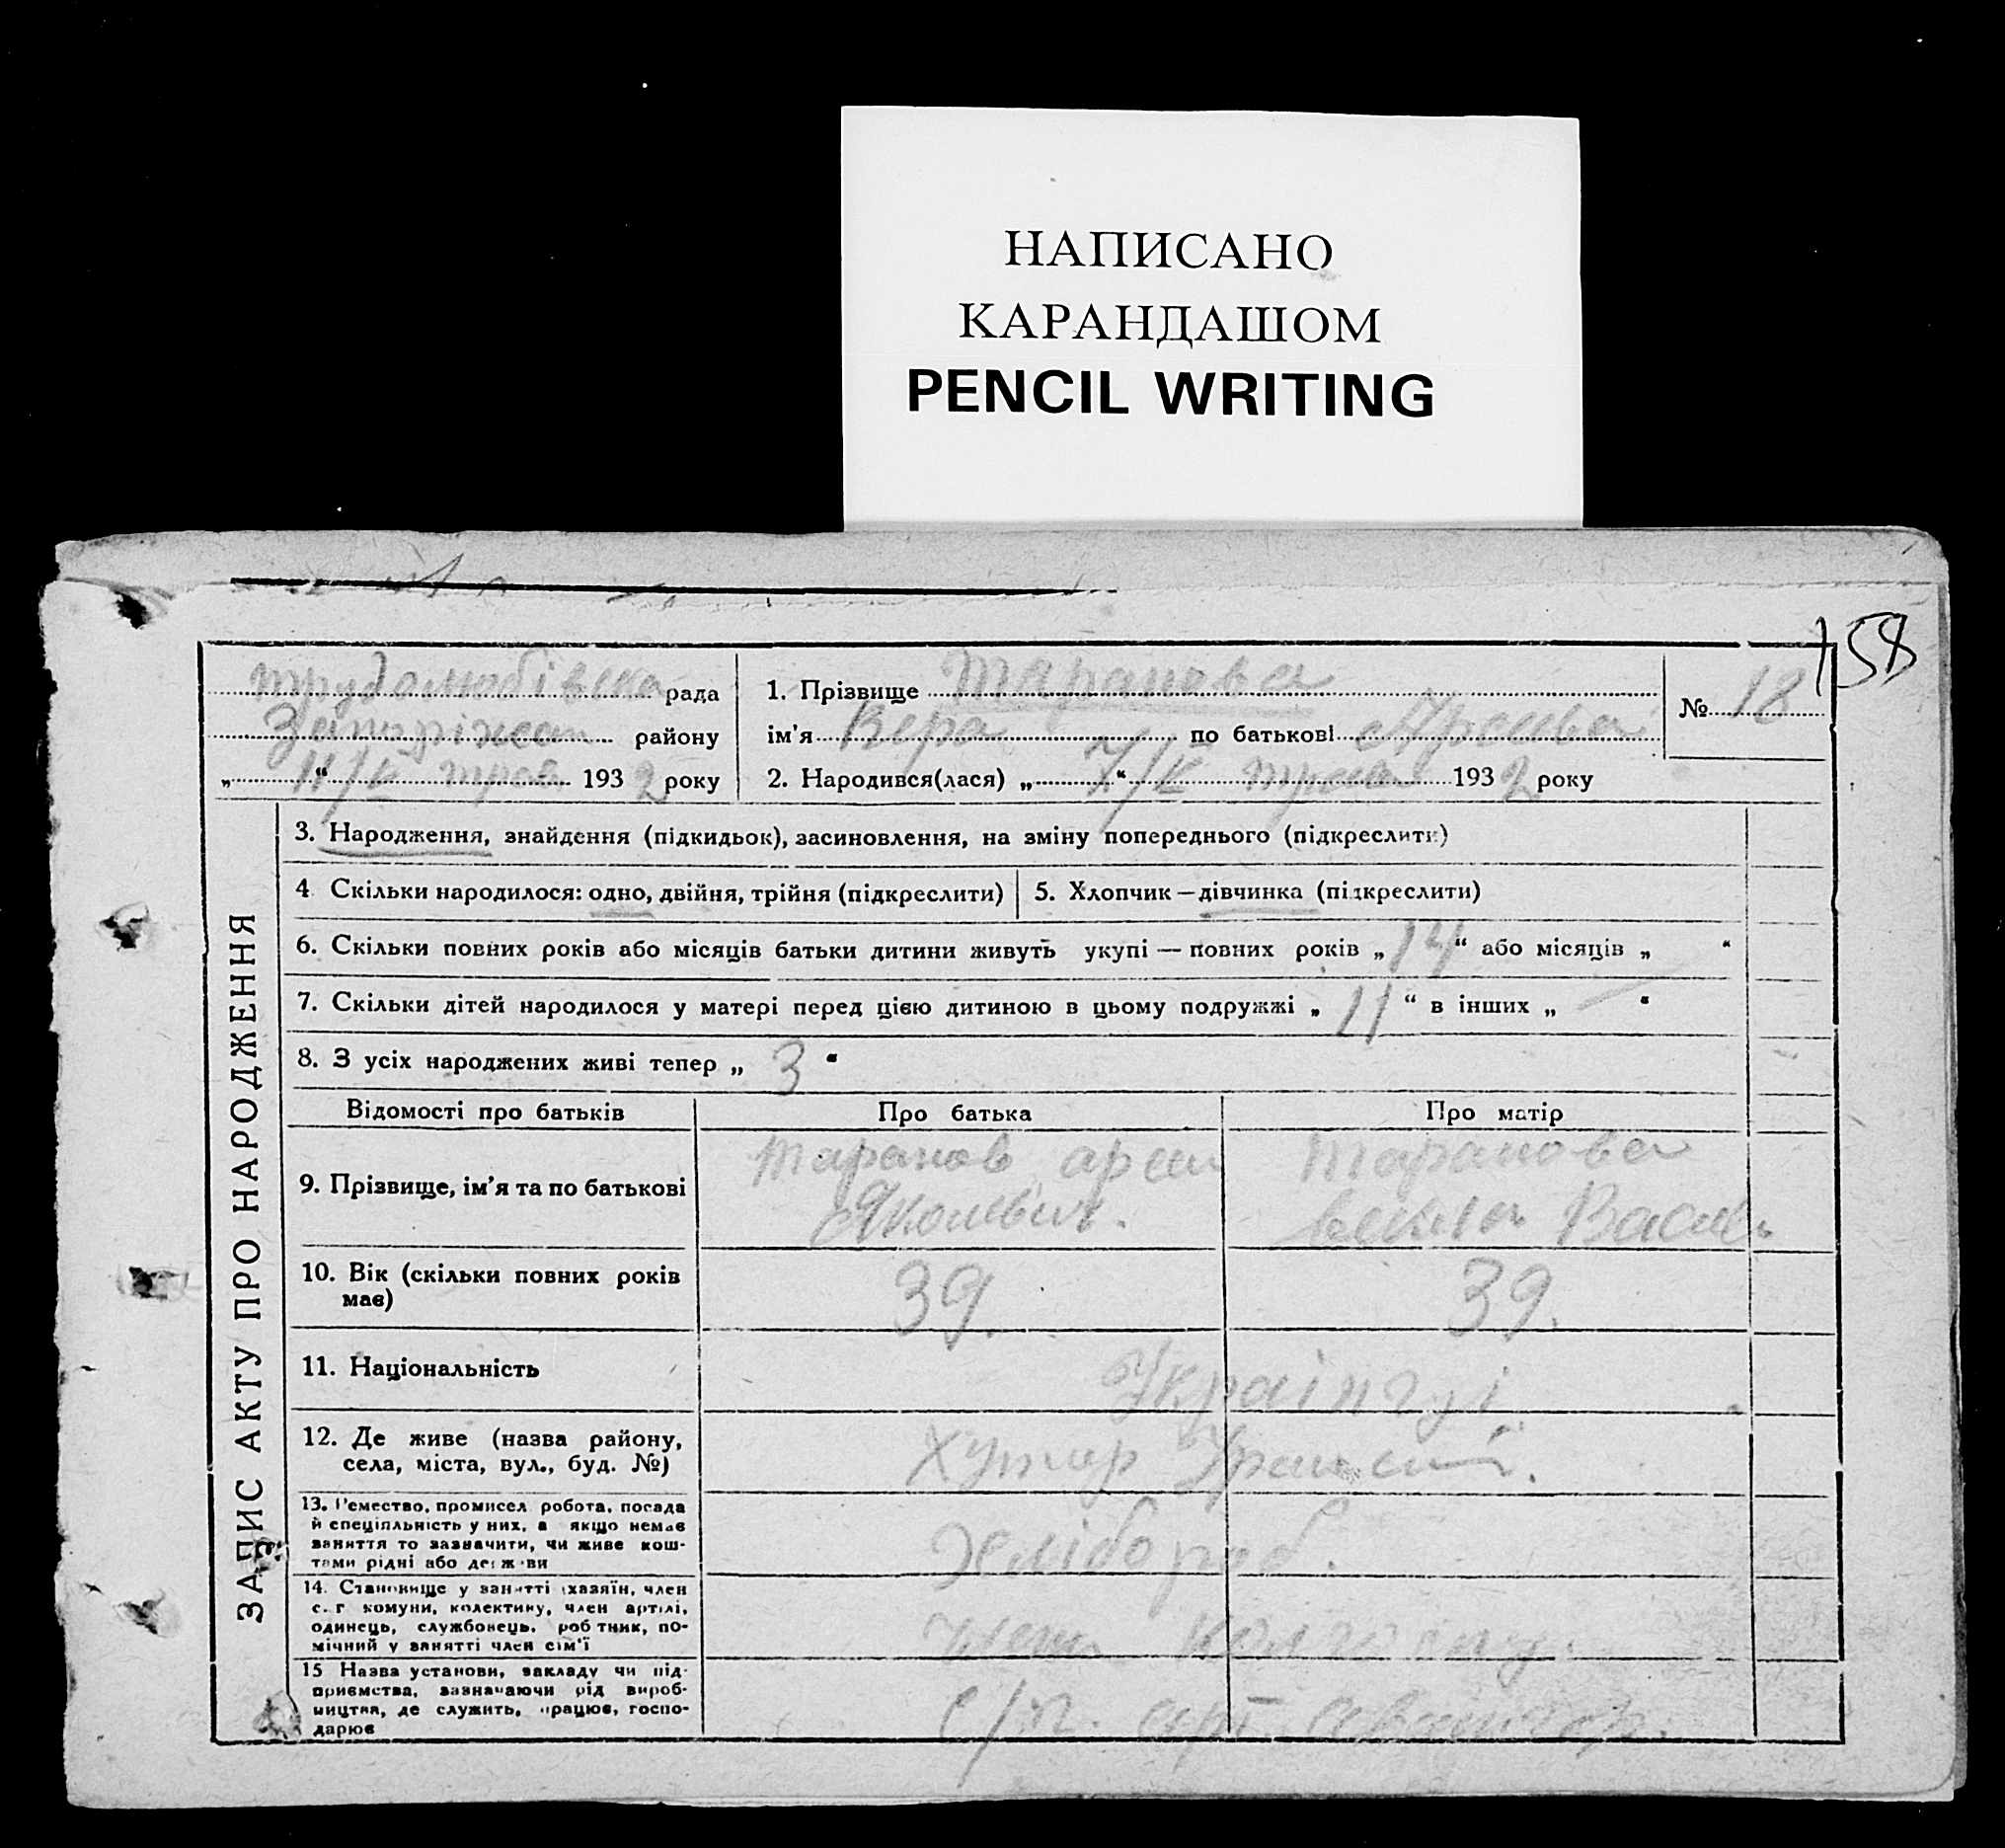 НАПИСАНО
КАРАНДАШОМ
PENCIL WRITING
158
трудолюбівська рада
1. Прізвище Таранова
№ 18
району
ім'я Вера по батькові
„11/V“ трав 1932 року
2. Народився(лася) „7/V“ трав 1932 року
ЗАПИС АКТУ ПРО НАРОДЖЕННЯ
3. Народження, знайдення (підкидьок), засиновлення, на зміну попереднього (підкреслити)
4 Скільки народилося: одно, двійня, трійня (підкреслити)
5. Хлопчик — дівчинка (підкреслити)
6. Скільки повних років або місяців батьки дитини живуть укупі — повних років „14“ або місяців „ “
7. Скільки дітей народилося у матері перед цією дитиною в цьому подружжі „11“ в інших „—“
8. З усіх народжених живі тепер „3“
Відомості про батьків
Про батька
Про матір
9. Прізвище, ім'я та по батькові
Таранов
Таранова
10. Вік (скільки повних років
має)
39.
39.
11. Національність
Українці
12. Де живе (назва району,
села, міста, вул., буд. №)
Хутір
13. Ремество, промисел робота, посада
й спеціяльність у них, а якщо немає
заняття то зазначити, чи живе кош-
тами рідні або держави
Хлібороб.
14. Становище у занятті (хазяїн, член
с. г комуни, колективу, член артілі,
одинець, службовець, робітник, по-
мічний у занятті член сім'ї
член колгоспу.
15 Назва установи, закладу чи під-
приємства, зазначаючи рід вироб-
ництва, де служить, працює, госпо-
дарює
с/г. арт.